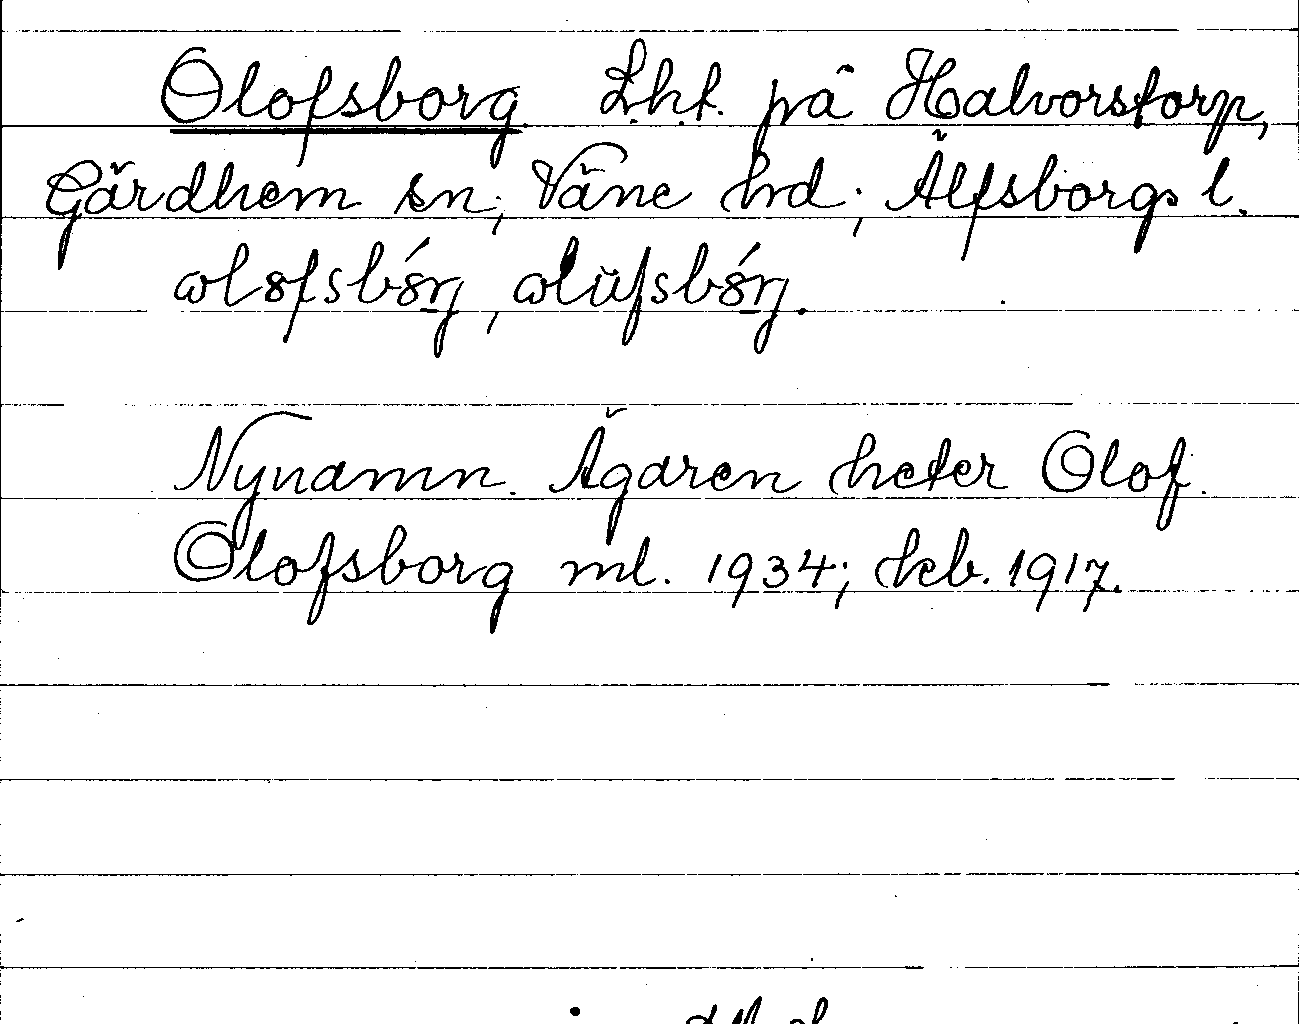 Olofsborg. L.h.t. på Halvorstorp,
Gärdhem sn; Väne hd; Älfsborgs l.
Nynamn. Ägaren heter Olof.
Olofsborg ml. 1934; kb. 1917.